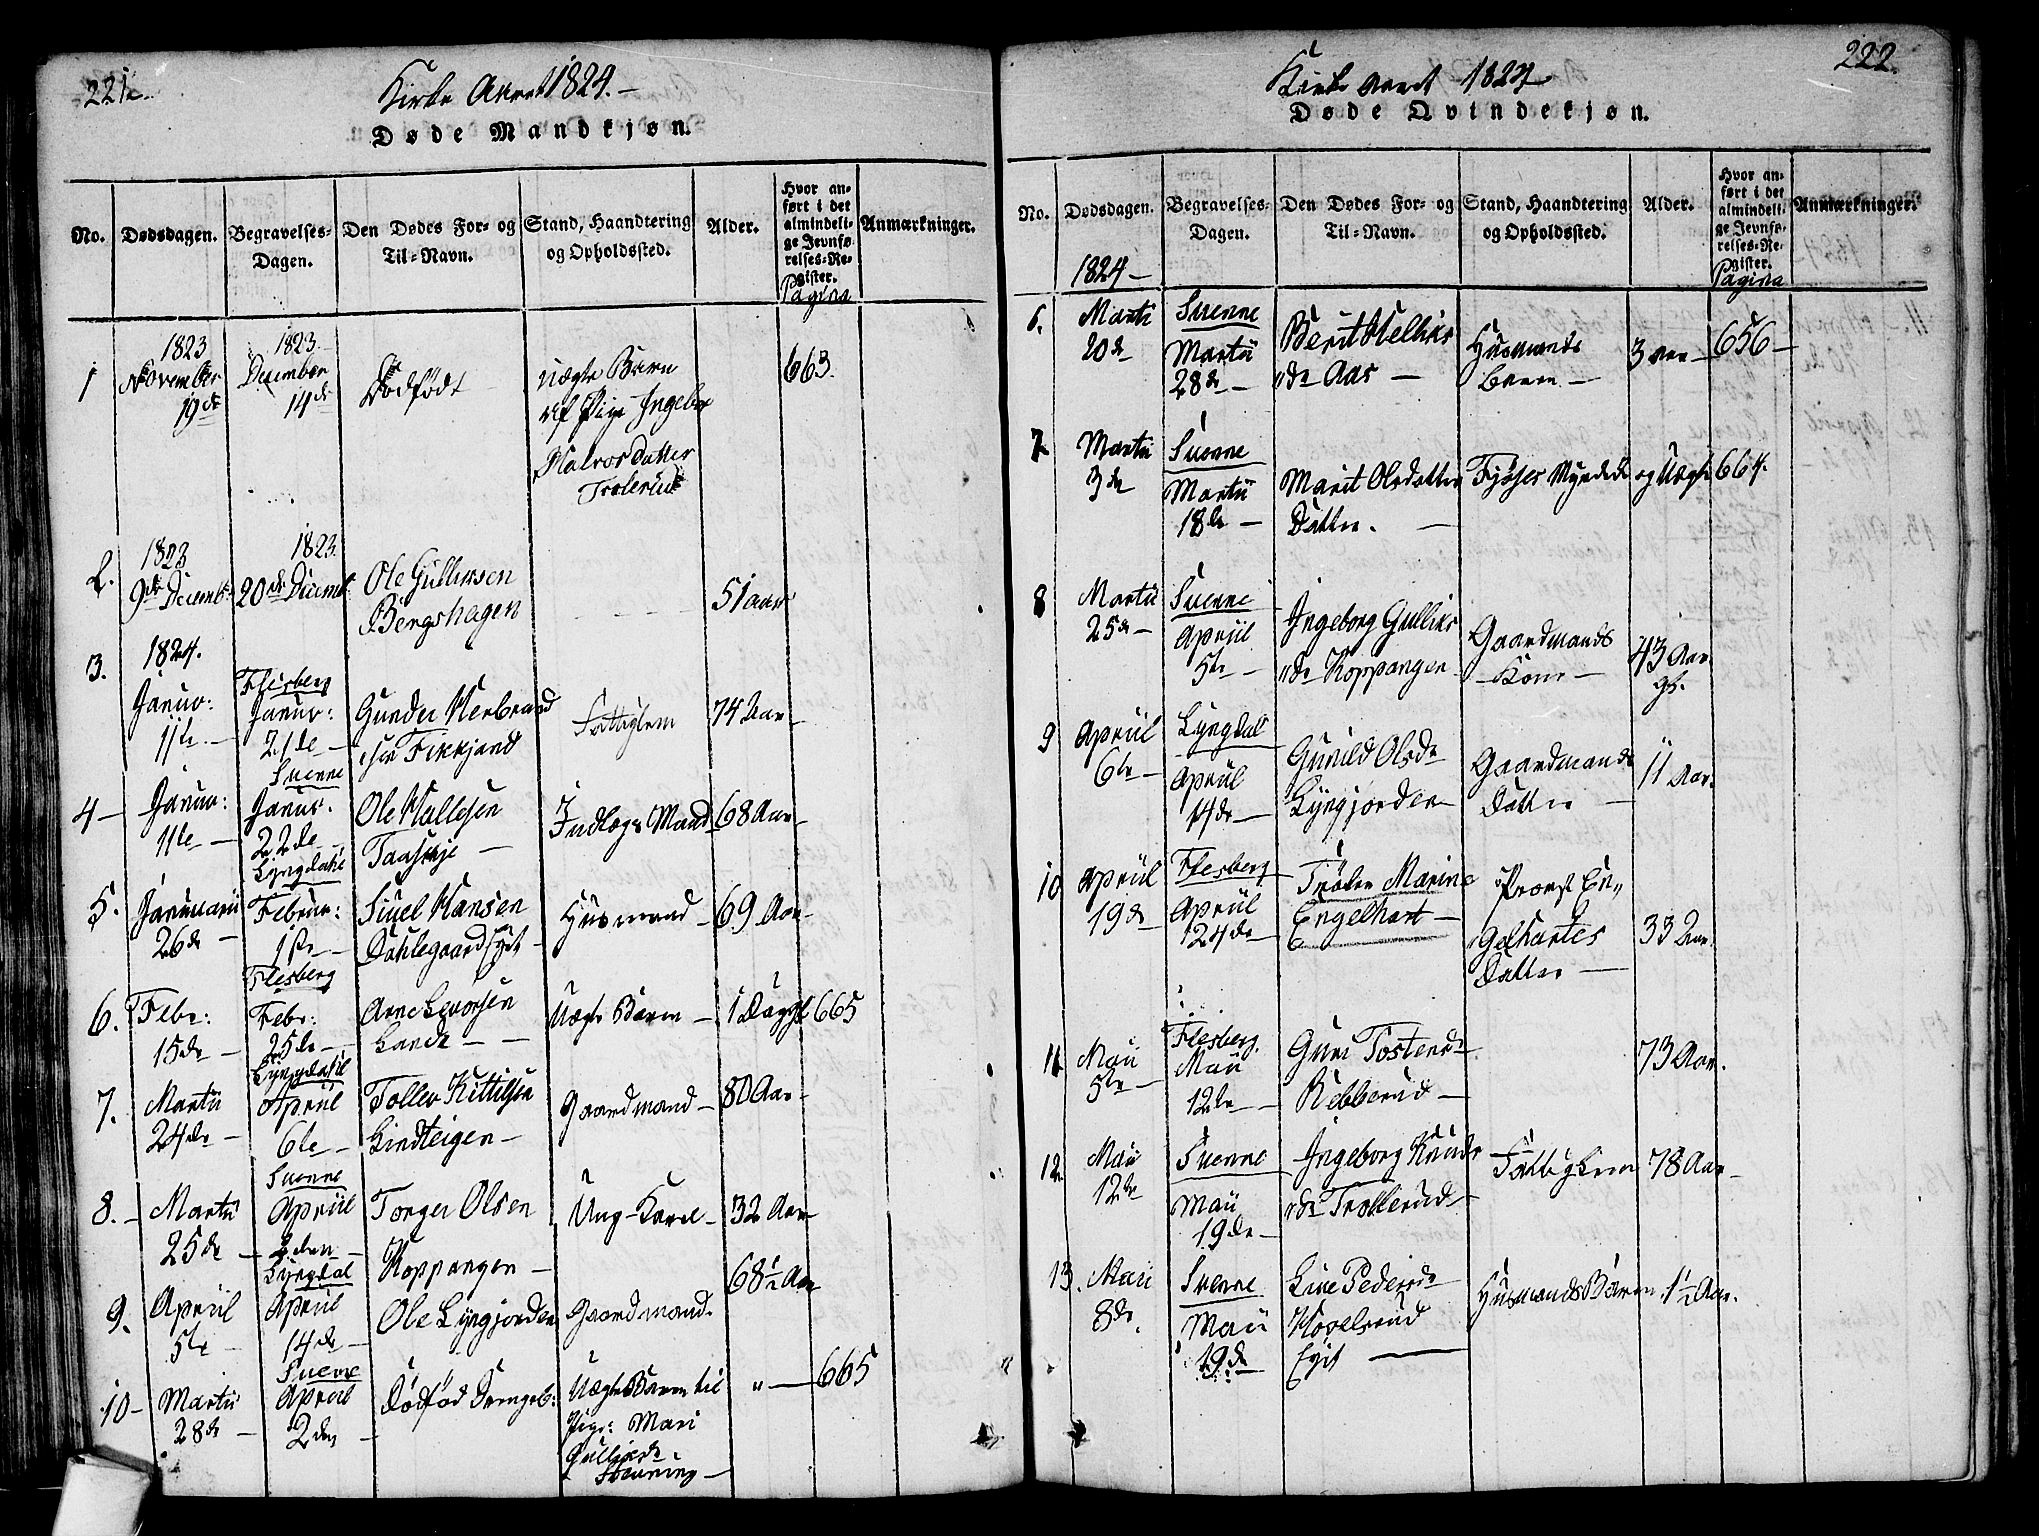 221.
Kirke Aaret 1824.
Døde Mandkjøn.
No. Dødsdagen. Begravelses-Dagen. Den Dødes For- og Til-Navn. Stand, Haandtering og Opholdssted. Alder. Hvor anført i det almindelige Jevnførelses-Register. Pagina Anmærkninger.
1 1823 November 19de 1823. December 14de Dødfødt uægte Barn af Pige Ingebor Halvorsdatter Trolerud 663.
2. 1823 9de Decemb: 1823. 20de Decemb: Ole Gulliksen Bergshagen 51 aar
3. 1824. Januar: 11te Flesberg Januar: 21de Gunder Herbrandsen Fekkjand Fattiglem 74 Aar
4 Januar: 11te Svenne Januar. 22de Ole Hallesen Taasehje Indlægs Mand 68 Aar
5. Januarii 26de Lyngdahl Februar: 1ste Siuel Hansen Dahlegaards Husmand 69 Aar
6. Febr: 15de Flesberg Febr: 25de Arne Levorsen Lande Uægte Barn 1 Dag gl 665
7. Martii 24de Lyngdahl April 6te Tollev Kittilsen Lindteigen Gaardmand 80 Aar
8. Martii 25de Svenne April Torger Olsen Koppangen Ung-Karl 32 Aar
9. April 5te Lyngdal April 14de Ole Lyngjorden Gaardmand. 68 1/2 Aar
10 Martii 28de Svenne April 2den Dødfød Drengeb: Uægte Barn til Pige: Mari Gulliksd: " 665
222.
Kirke aaret 1824
Døde Qvindekjøn.
No. Dødsdagen. Begravelses-Dagen. Den Dødes For- og Til-Navn. Stand, Haandtering og Opholdssted. Alder. Hvor anført i det almindelige Jevnførelses-Register. Pagina Anmærkninger.
1824
6. Marti 20de Svenne Martii 28de Berit Helliksde Aas Husmands Barn 3 aar 656
7. Martii 3de Svenne Martii 18de Marit Olsdatter Datter. Uægte 664.
8 Martii 25de Svenne April 5te Ingeborg Gulliksde Koppangen Gaardmands Kone 43 Aar gl.
9 April 6te Lyngdal April 14de Gunild Olsde Lyngjorden Gaardmands Datter 11 Aar
10 April 19de Flesberg April 24de Marine Engelhart Provst Engelhartes Datter 33 Aar
11 Maii 5te Flesberg. Maii 12te Guri Tostensde Rebberud 73 Aar.
12. Maii 12te Svenne Maii 19de Ingeborg Knudsde Trollerud Fattiglem 78 Aar
13. Maii 8de Svenne Maii 19de Live Pedersde Hovelsrud Eyit HusmandsBarn 1 1/2 Aar.